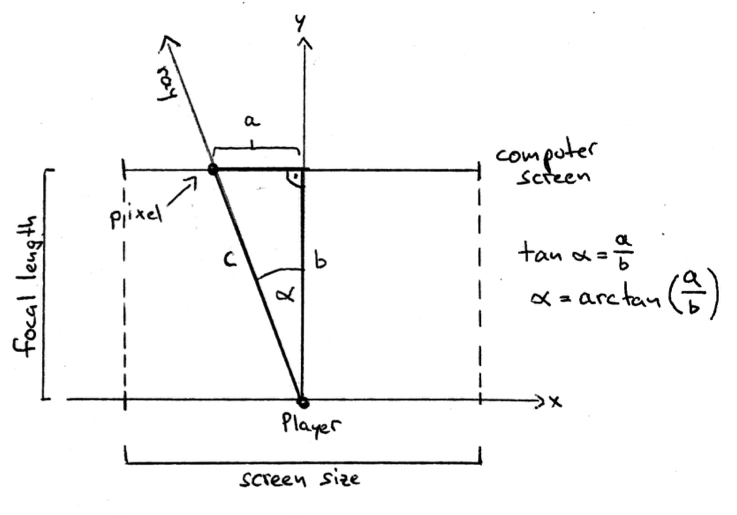 y
ray
a
computer
screen
pixel
focal length
c
b
α
tan α = a/b
α = arctan (a/b)
x
Player
screen size